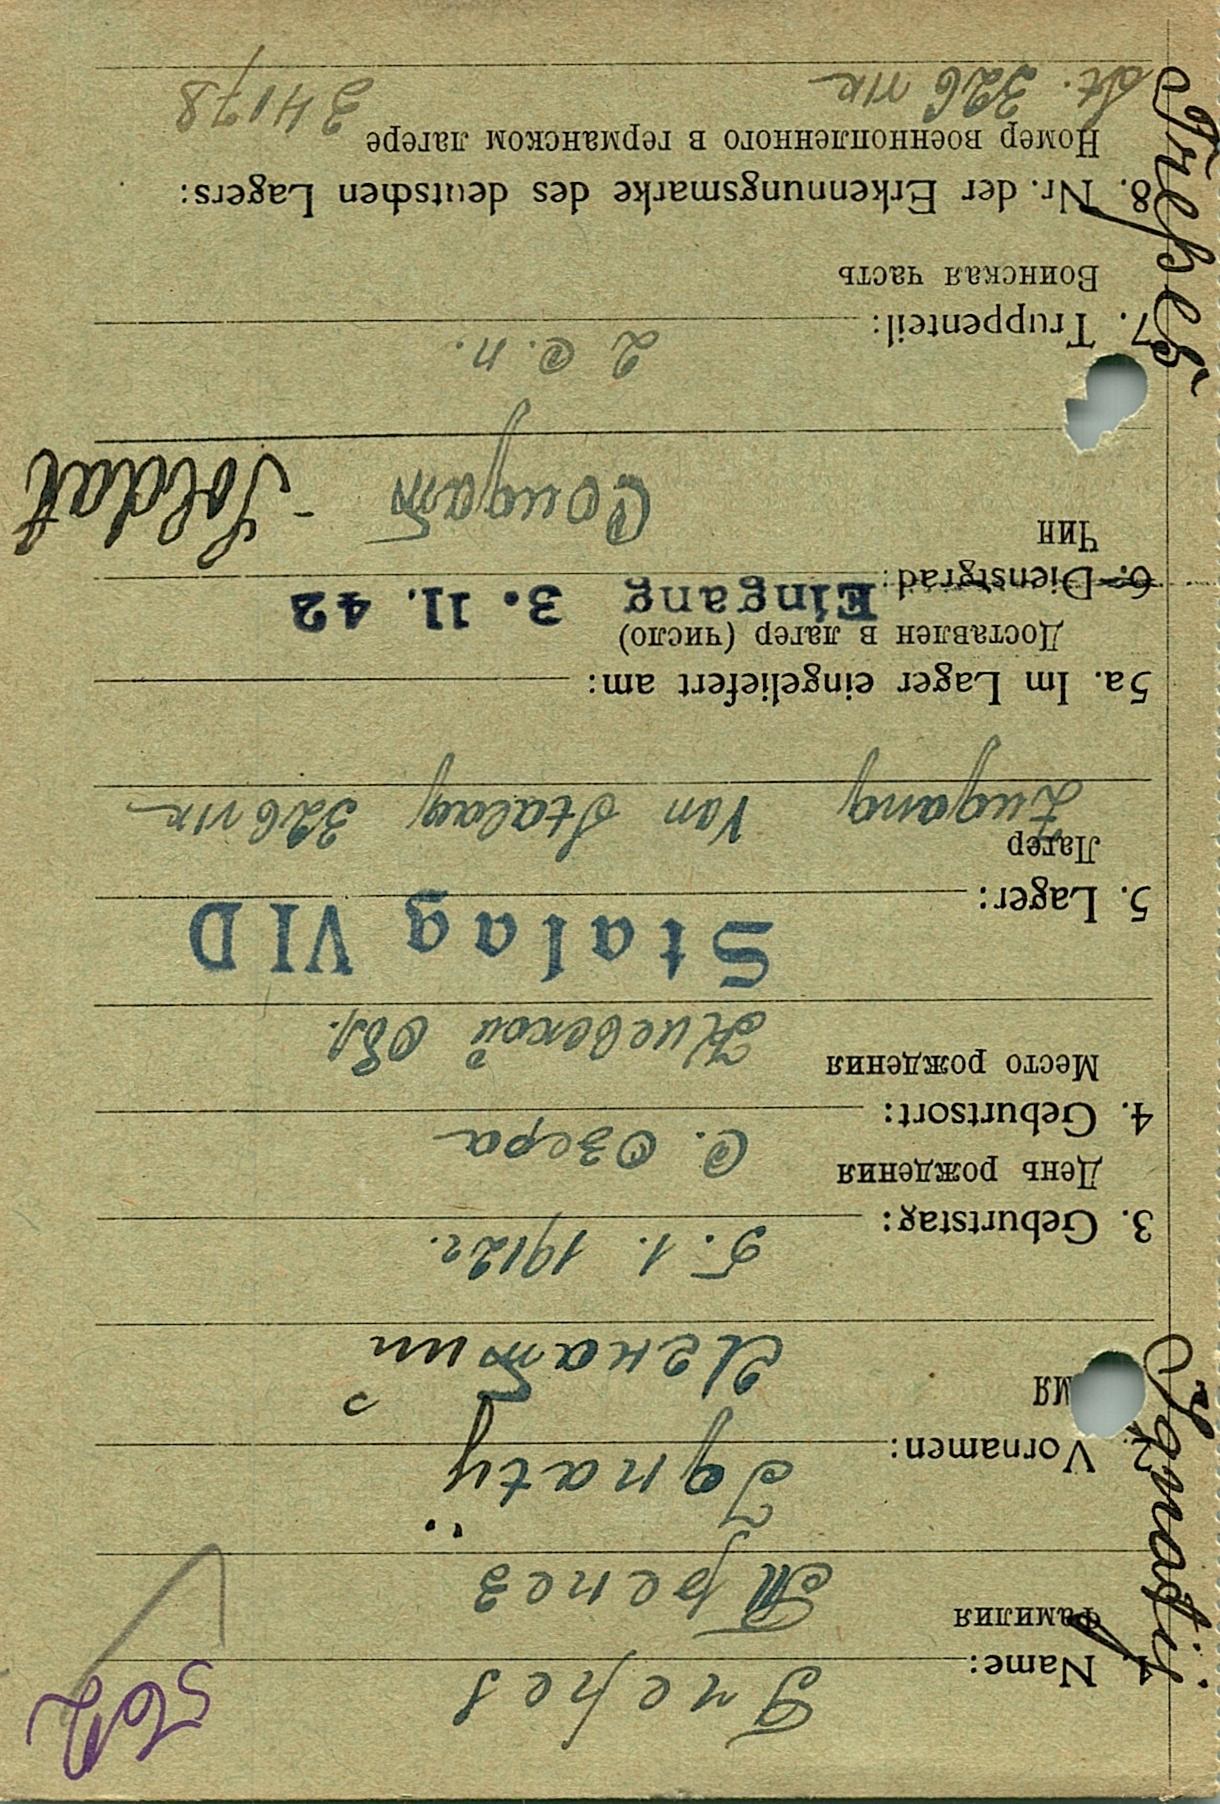 562
1. Name: Trepes
Фамилия Трепез
2. Vornamen: Ignatij
Имя Игнатий
3. Geburtstag: 5. 1. 1912г.
День рождения
4. Geburtsort: С. Озера
Место рождения Киевской Обл.
Stalag VI D
5. Lager:
Лагерь Zugang Von Stalag 326 VIK
5a. Im Lager eingeliefert am:
Доставлен в лагер (число)
Eingang 3. 11. 42
6. Dienstgrad:
Чин Солдат - Soldat
7. Truppenteil: 2 с.п.
Воинская часть
8. Nr. der Erkennungsmarke des deutschen Lagers:
Номер военнопленного в германском лагере
St. 326 VIK 34178
Ignatij